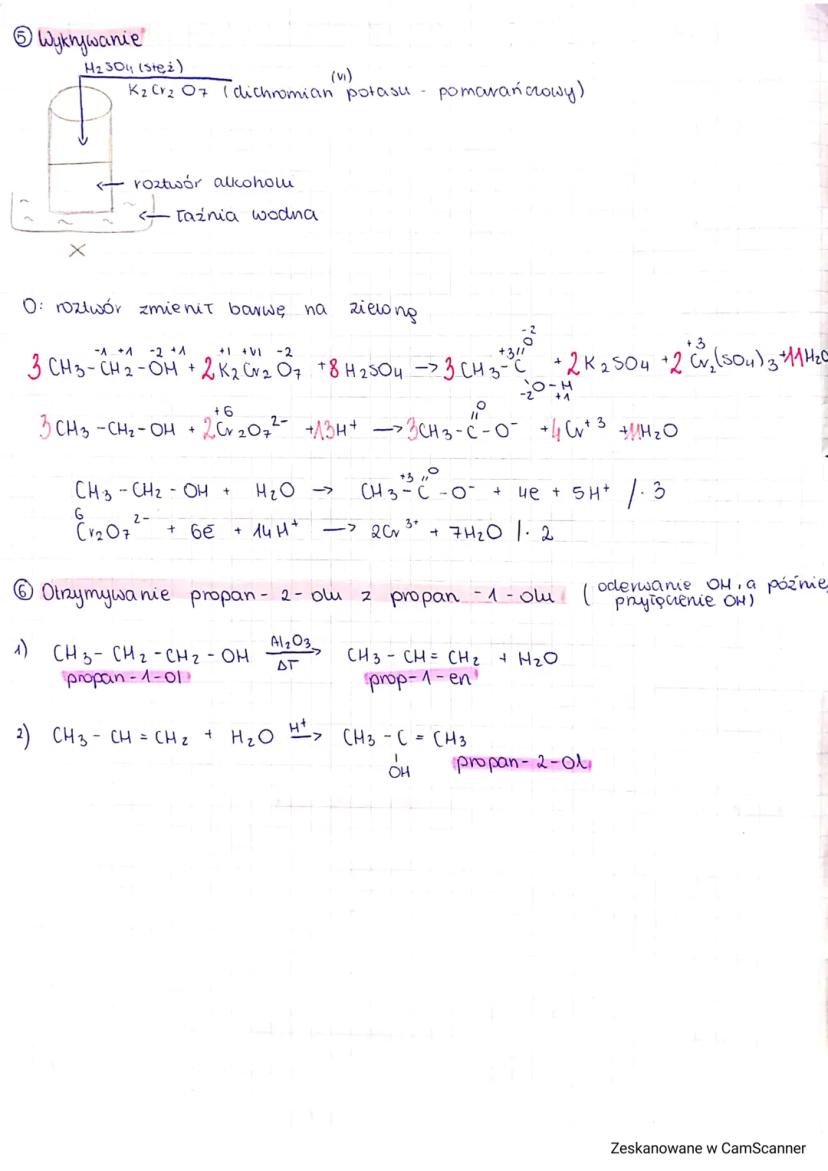 ⑤ Wykrywanie
H2SO4 (stęż)
K2Cr2O7 (dichromian (VI) potasu - pomarańczowy)
← roztwór alkoholu
← łaźnia wodna
O: roztwór zmienił barwę na zieloną
-1 +1 -2 +1 +1 +VI -2 +3 -2 +3
3 CH3-CH2-OH + 2 K2Cr2O7 + 8 H2SO4 → 3 CH3-C(=O)-O-H + 2 K2SO4 + 2 Cr2(SO4)3 + 11 H2O
-2 +1
+6
3 CH3-CH2-OH + 2 Cr2O7²⁻ + 13 H⁺ → 3 CH3-C(=O)-O⁻ + 4 Cr⁺³ + 11 H2O
+3
CH3-CH2-OH + H2O → CH3-C(=O)-O⁻ + 4e + 5H⁺ /·3
6
Cr2O7²⁻ + 6ē + 14H⁺ → 2Cr³⁺ + 7H2O /·2
⑥ Otrzymywanie propan-2-olu z propan-1-olu (oderwanie OH, a później
przyłączenie OH)
1) CH3-CH2-CH2-OH Al2O3 ΔT → CH3-CH=CH2 + H2O
propan-1-ol prop-1-en
2) CH3-CH=CH2 + H2O H⁺ → CH3-C=CH3
OH propan-2-ol
Zeskanowane w CamScanner